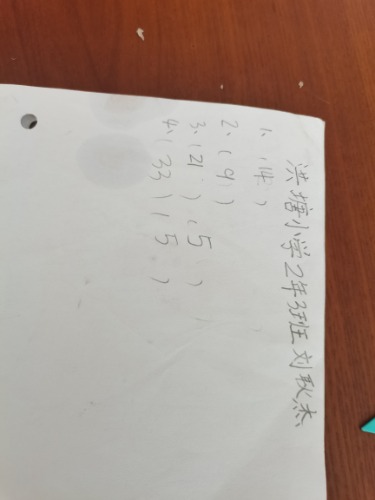 洪塘小学2年3班 刘耿杰
1、(14)
2、(9)
3、(21)(5)
4、(33)(5)